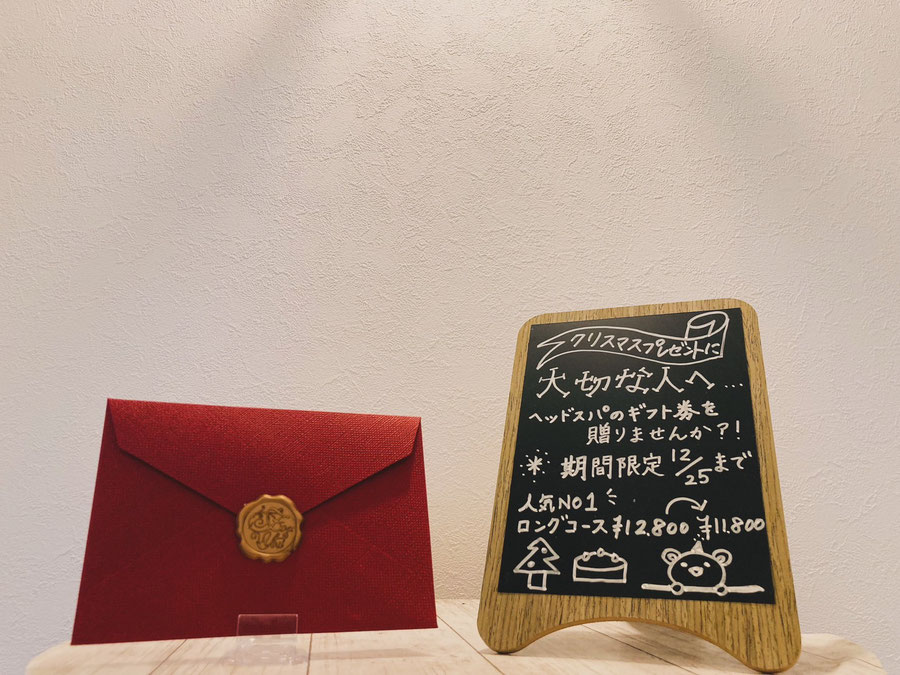 クリスマスプレゼントに
大切な人へ…
ヘッドスパのギフト券を
贈りませんか?!
期間限定12/25まで
人気NO1
ロングコース ¥12,800 ¥11,800